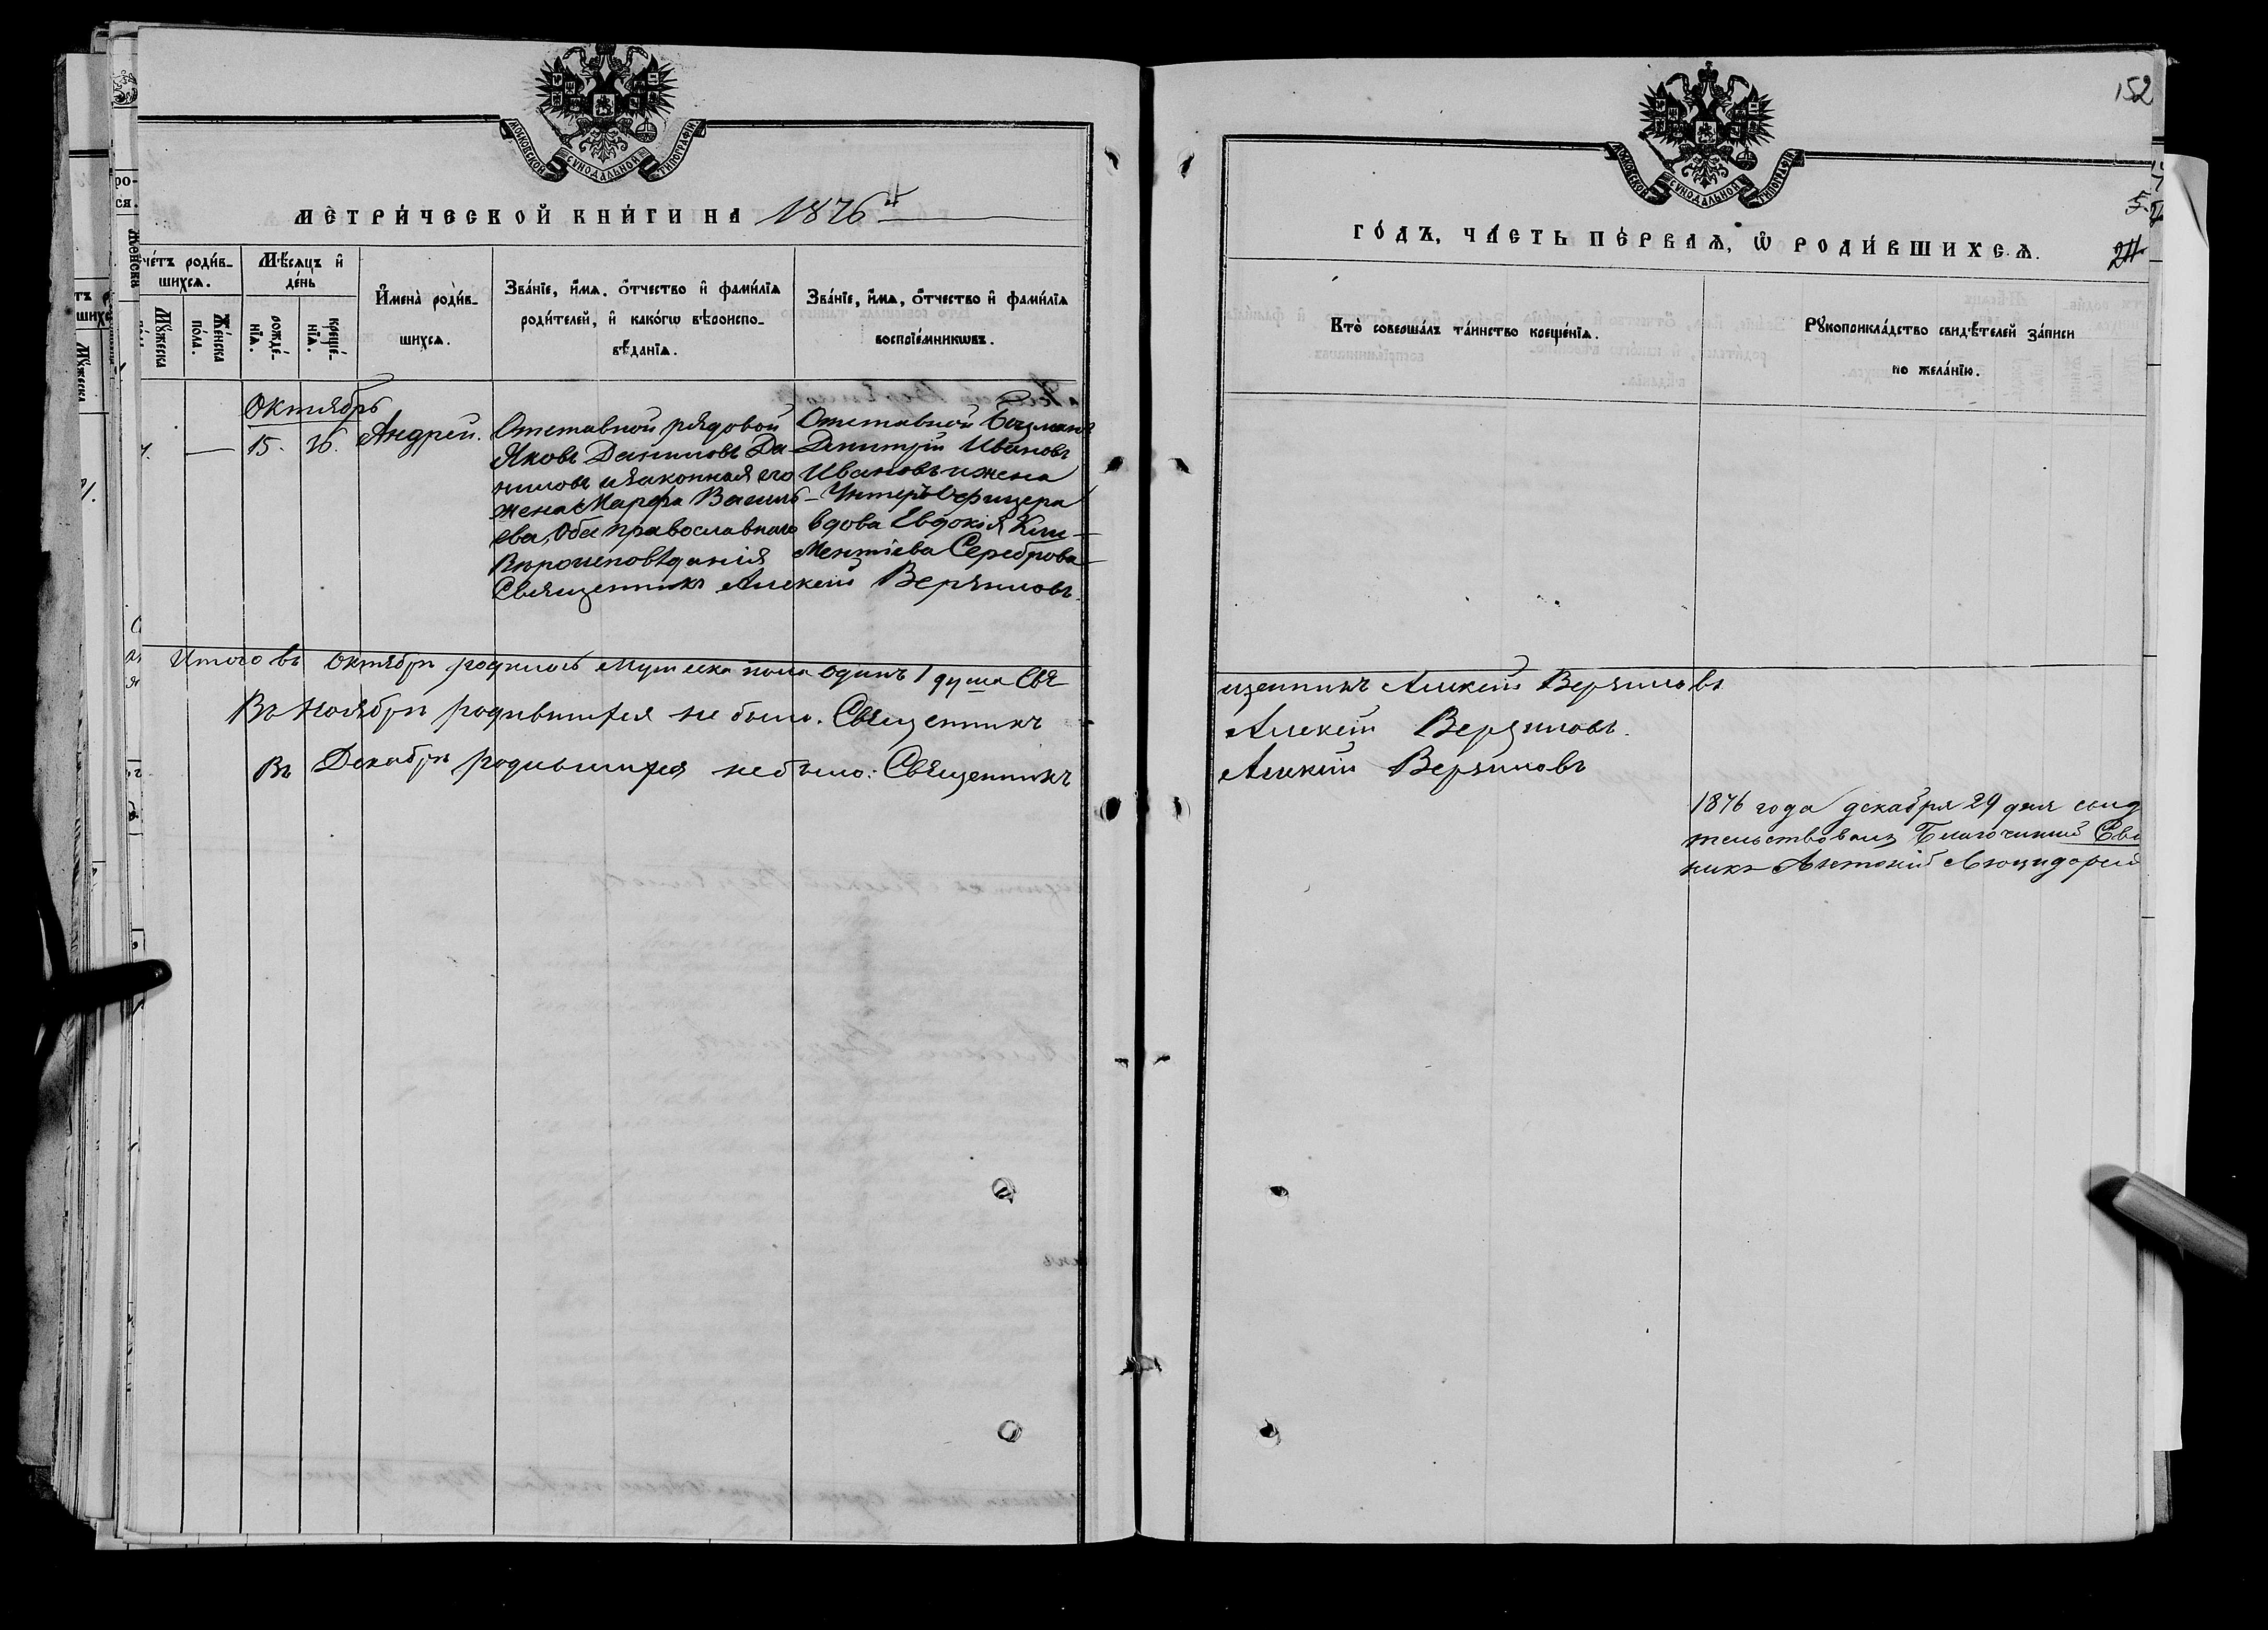 МОСКОВСКОЙ СѴНОДАЛЬНОЙ ТИПОГРАФІИ.
МЕТРИ́ЧЕСКОЙ КНИ́ГИ НА 1876й
че́тъ роди́в-
шихсѧ.
Мꙋ́жеска
Же́нска
по́ла.
Мѣ́сѧцъ и҆
де́нь
рожде́-
нїѧ.
креще́-
нїѧ.
И҆мена̀ роди́в-
шихсѧ.
Зва́нїе, и҆́мѧ, ѻ҆́тчество и҆ фами́лїѧ
роди́телей, и҆ како́гѡ вѣроиспо-
вѣ́данїѧ.
Зва́нїе, и҆́мѧ, ѻ҆́тчество и҆ фами́лїѧ
воспрїе́мникѡвъ.
Октябрь
15. Андрей.
Отставной рядовой
Яковъ Даниловъ Да-
ниловъ и законная его
жена Марфа Василь-
ева, Оба православнаго
Вѣроисповѣданія
Отставной
Димитрій Ивановъ
Ивановъ и жена
Унтеръ Офицера
вдова Евдокія Кли-
ментіева Сереброва
Священникъ Алексій Верзиловъ.
Итого въ Октябрѣ родилось Мужеска пола одинъ 1 душа Свя-
Въ Ноябрѣ родившихся не было. Священникъ
Въ Декабрѣ родившихся не было. Священникъ
152
МОСКОВСКОЙ СѴНОДАЛЬНОЙ ТИПОГРАФІИ.
ГО́ДЪ, ЧА́СТЬ ПЕ́РВАѦ, Ѽ РОДИ́ВШИХСѦ.
Кто̀ соверша́лъ та́инство креще́нїѧ.
Рꙋкоприкла́дство свидѣ́телей за́писи
по жела́нїю.
щенникъ Алексій Верзиловъ
Алексій Верзиловъ.
Алексій Верзиловъ
1876 года декабря 29 дня свид
тельствовалъ Благочинный Свя
никъ Антоній